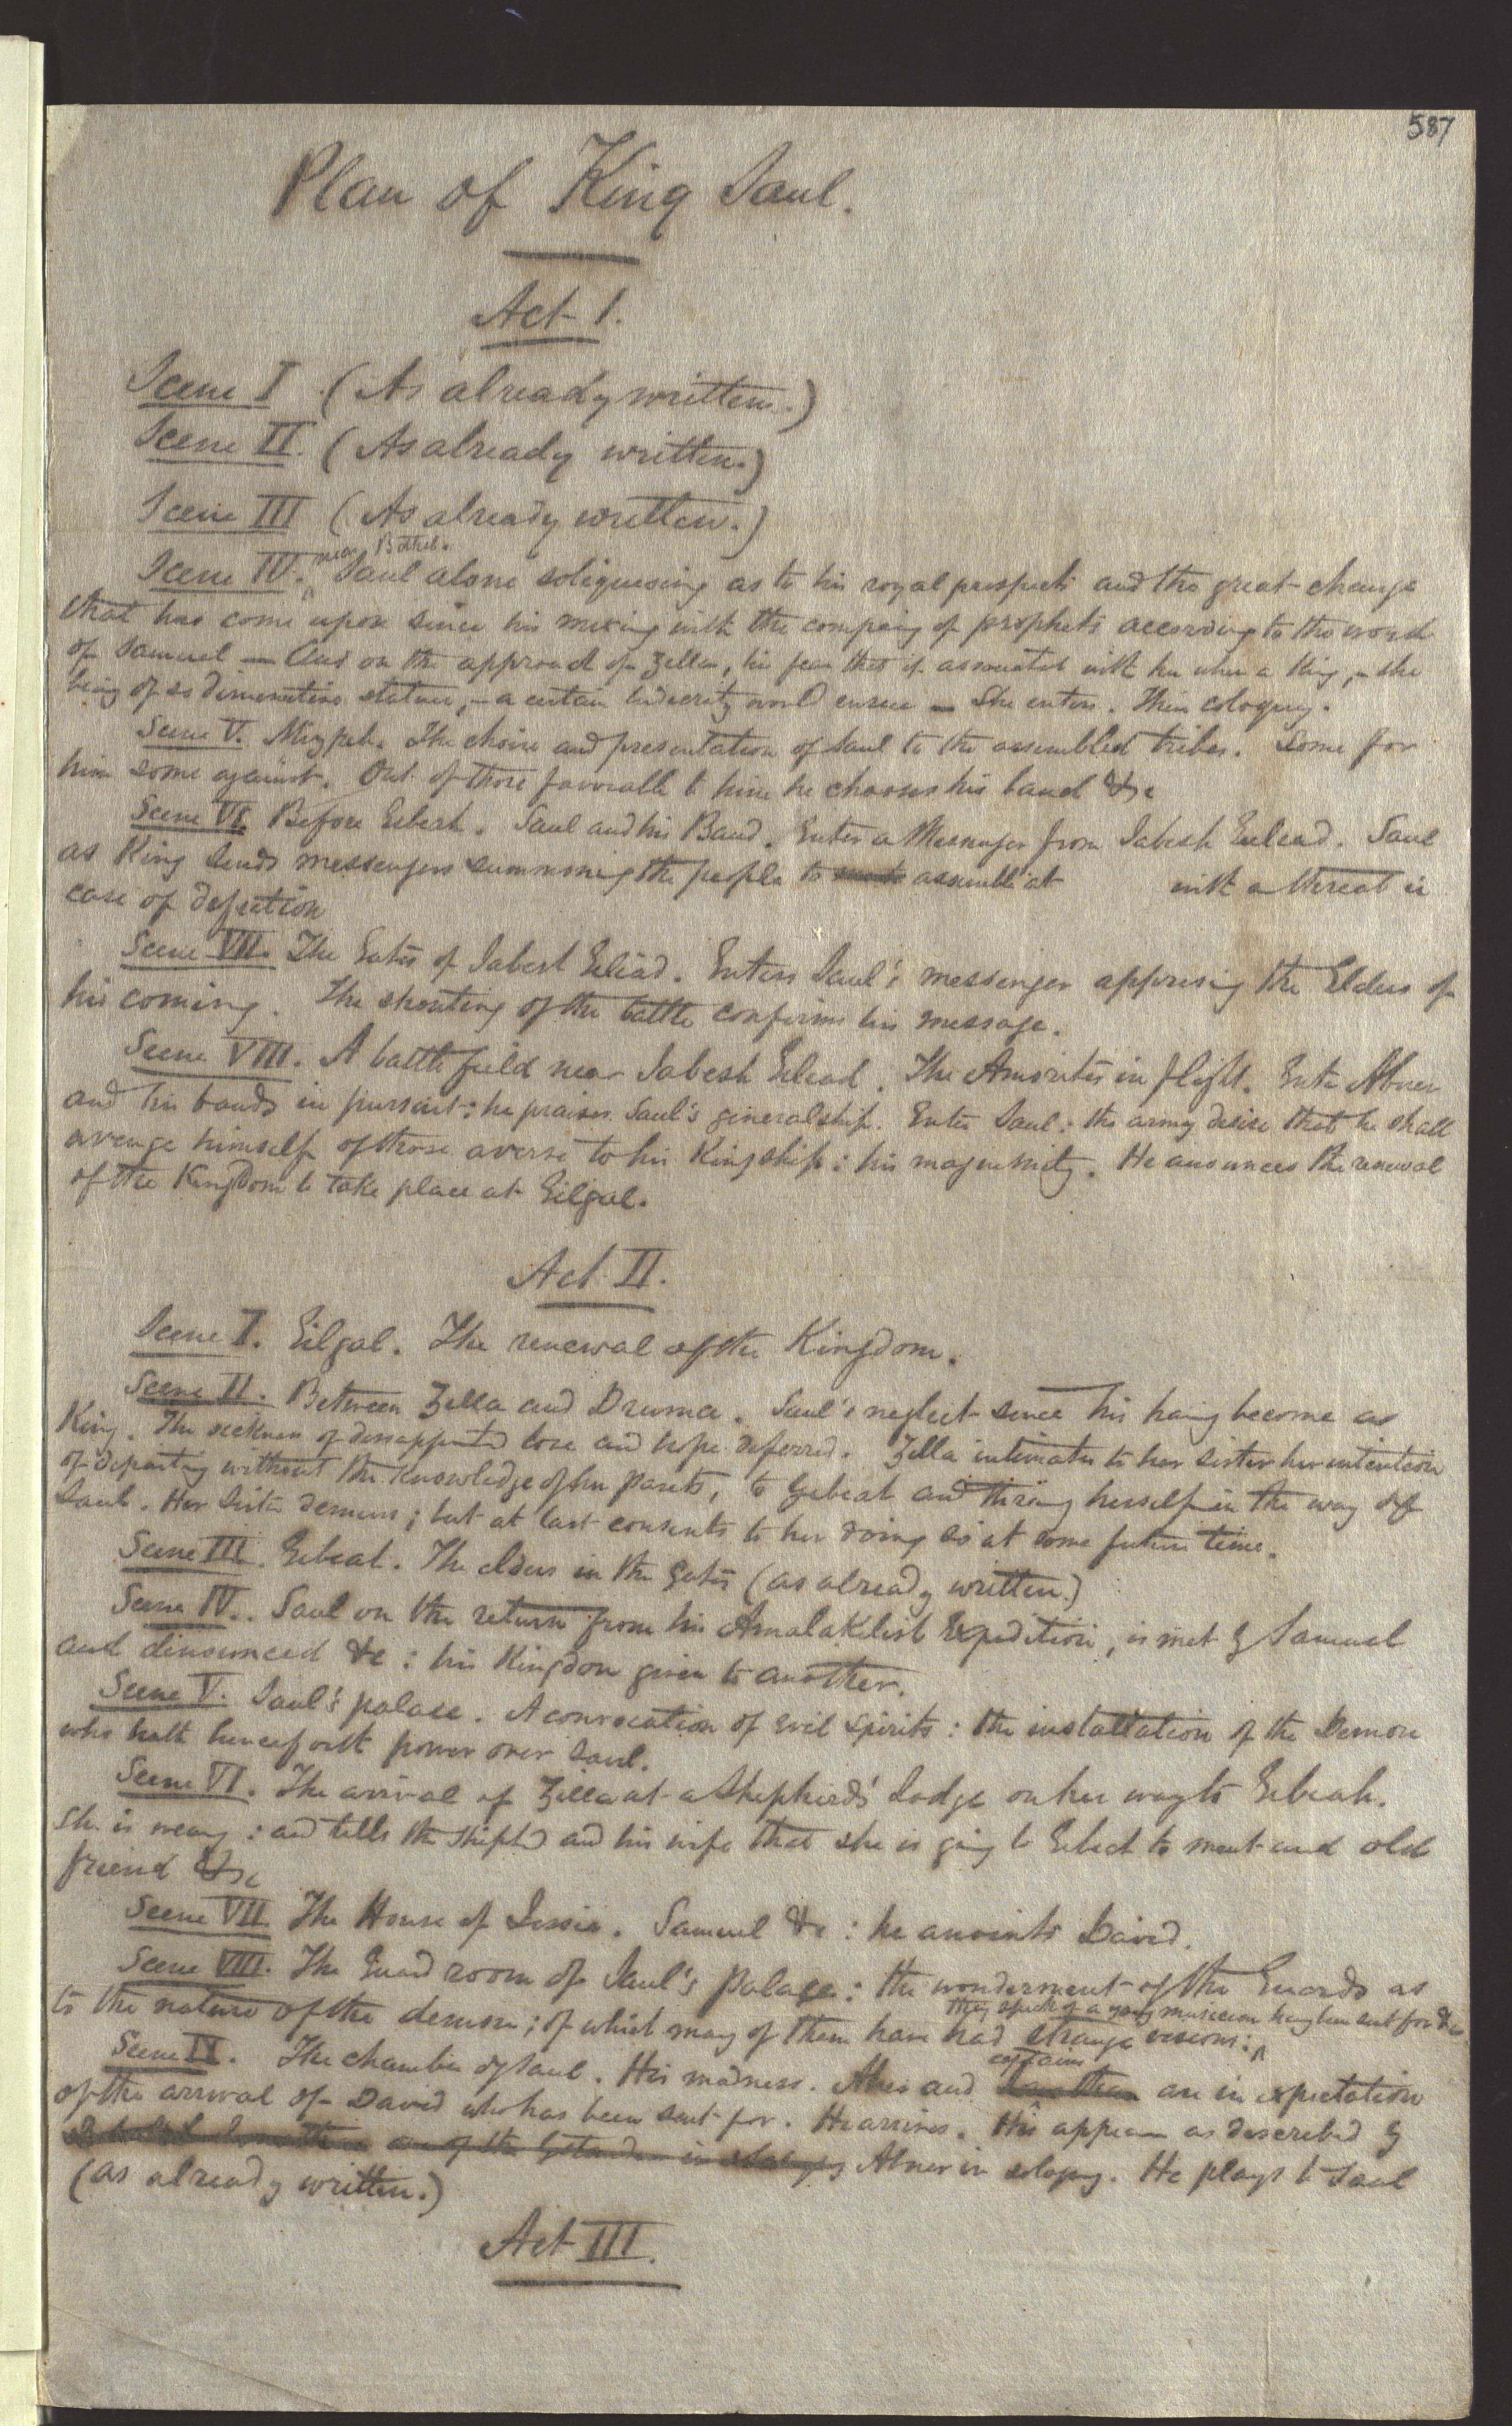 587
Plan of King Saul.
Act I.
Scene I (As already written.)
Scene II. (As already written.)
Scene III (As already written.)
near Bethel.
Scene IV. Saul alone soliquesing as to his royal prospects and the great change
that has come upon since his mixing with the company of prophets according to the word
of Samuel — And on the approach of Zella, his fear that if associated with her when a King, – she
being of so dimenutive stature, – a certain would ensue — She enters. Their coloquy.
Scene V. Mizpah. The choice and presentation of Saul to the assembled tribes. Some for
him some against. Out of those favorable to him he chooses his band &c
Scene VI. Before Gibeah. Saul and his Band. Enter a Messenger from Jabesh Gilead. Saul
as King sends messengers summoning the people to assemble at with a threat in
case of defection
Scene VII. The Gates of Jabesh Gilead. Enters Saul's messenger apprising the Elders of
his coming. The shouting of the battle confirms his message.
Scene VIII. A battle field near Jabesh Gilead. The Amorites in flight. Enter Abner
and his bands in pursuit: he praises Saul's generalship. Enter Saul: the army desire that he shall
avenge himself of those averse to his Kingship: his He anounces the renewal
of the Kingdom to take place at Gilgal.
Act II.
Scene I. Gilgal. The renewal of the Kingdom.
Scene II. Between Zella and Druma. Saul's neglect since his having become as
King. The sickness of dissappointed love and hope deferred. Zella intimates to her sister her intention
of departing without the knowledge of her parents, to Gebeah and throwing herself in the way of
Saul. Her sister demurs; but at last consents to her doing so at some future time.
Scene III. Gibeah. The elders in the gates (as already written.)
Scene IV. Saul on the return from his Amalakitish Expedition, is met by Samuel
and dinounced &c: his Kingdom given to another.
Scene V. Saul's palace. A convocation of evil spirits: the installation of the Demon
who hath henceforth power over Saul.
Scene VI. The arrival of Zella at a Shepherds' Lodge on her way to Gibeah.
She is weary: and tells the Shepherd and his wife that she is going to Gibeah to meet and old
friend &c
Scene VII The House of Jessie. Samuel &c: he anoints David.
Scene VIII. The Guard room of Saul's palace: the wonderment of the Guards as
they speak of a young musician having been sent for &c
to the nature of the demon; of which many of them have had strange visions:
captains
Scene IX. The chamber of Saul. His madness. Abner and Jonathan are in expectation
of the arrival of David who has been sent for. He arrives. His appearance as described by
Abner in coloquy. He plays to Saul
(as already written.)
Act III.